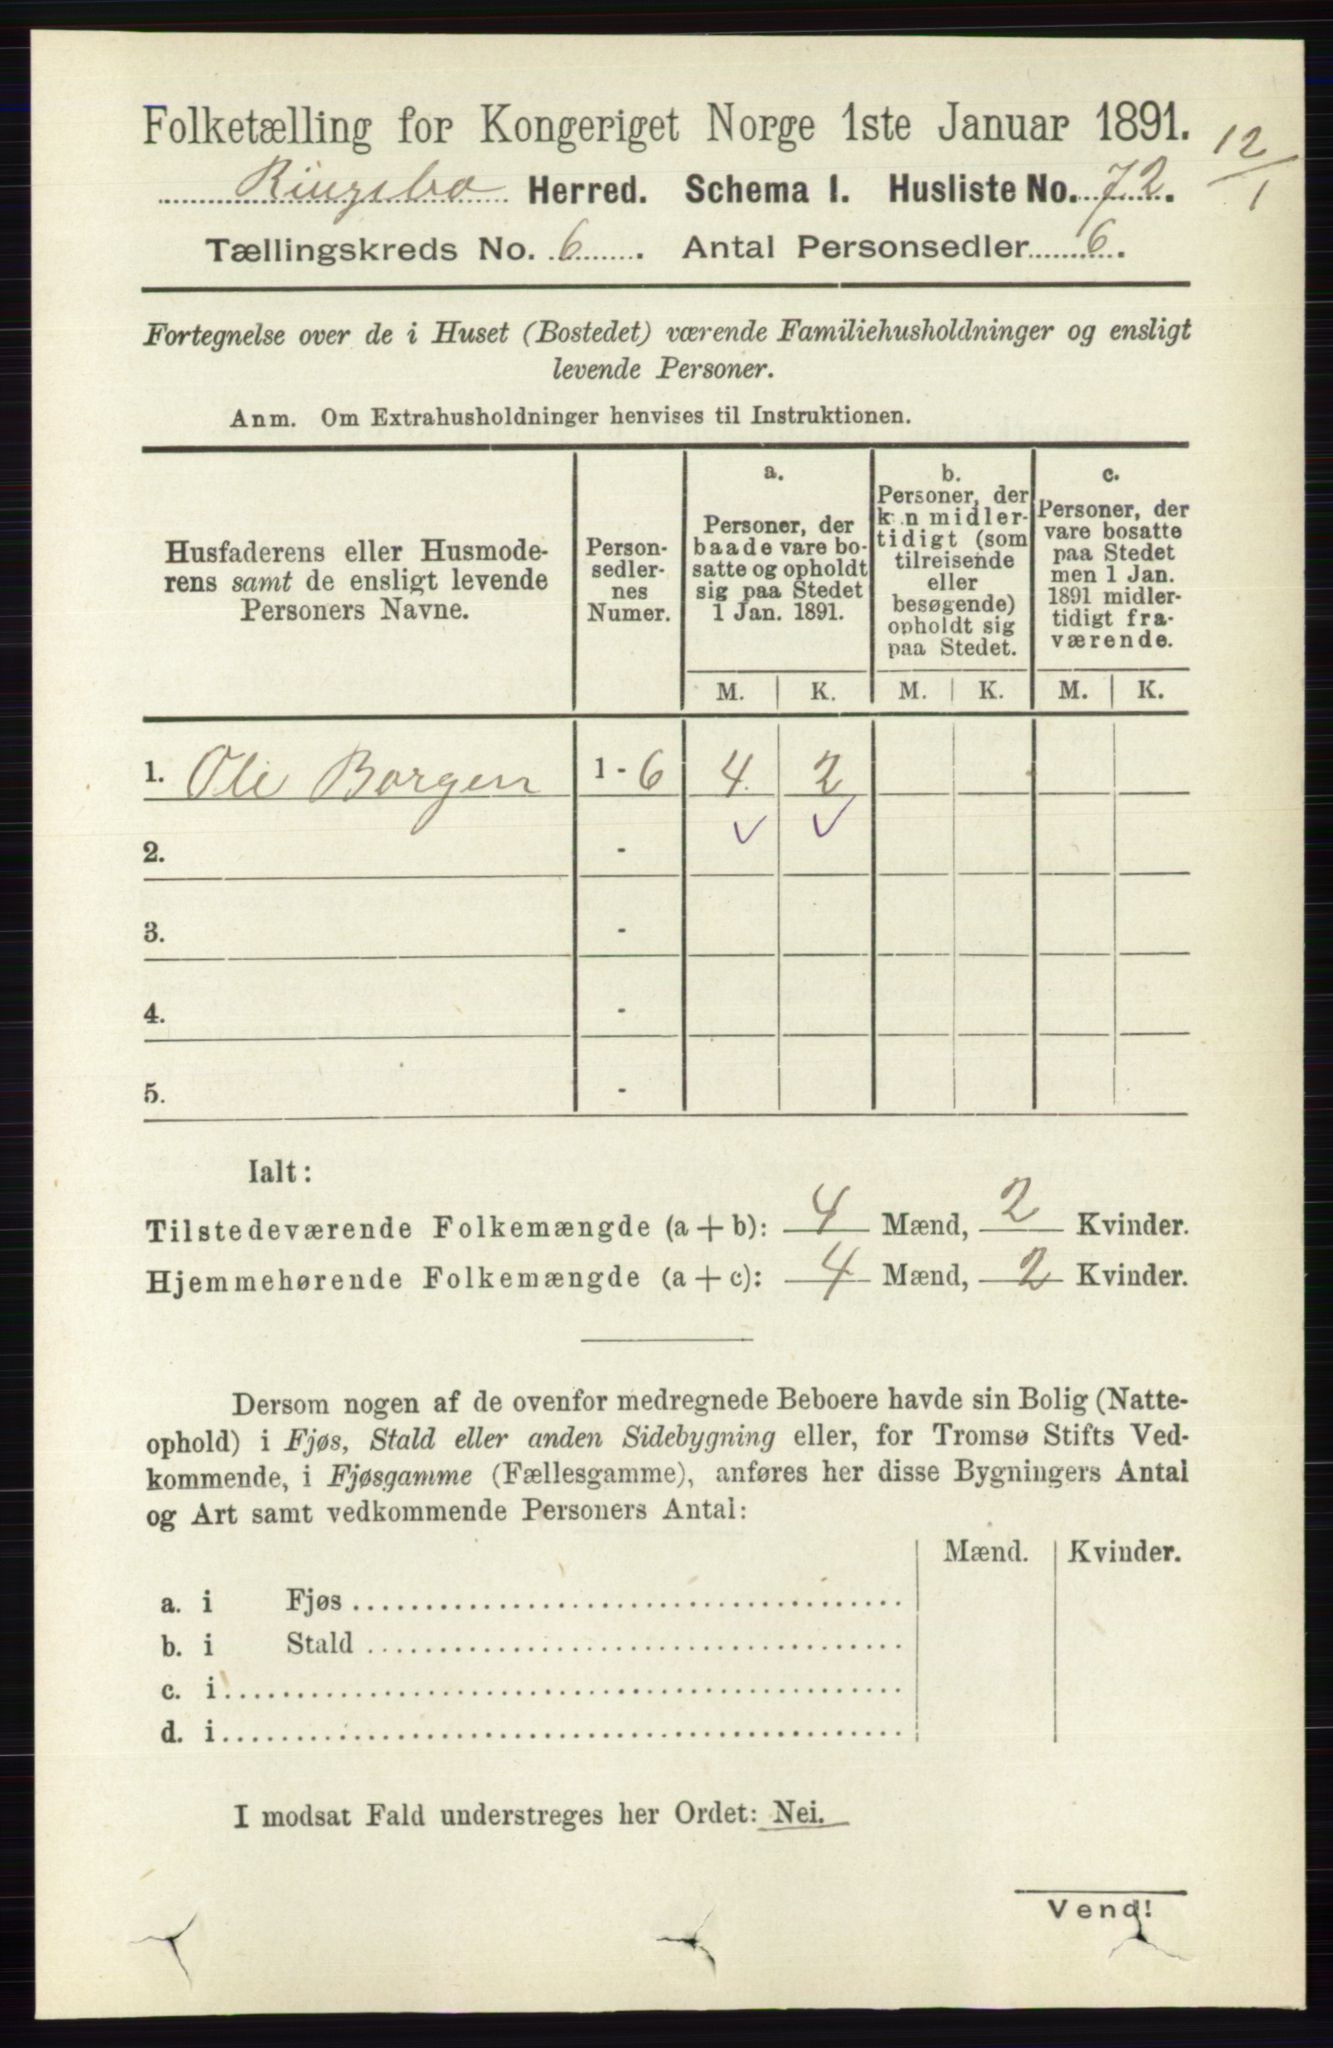 Folketælling for Kongeriget Norge 1ste Januar 1891.
12/1
Ringsbo Herred. Schema I. Husliste No. 72.
Tællingskreds No. 6. Antal Personsedler 6.
Fortegnelse over de i Huset (Bostedet) værende Familiehusholdninger og ensligt
levende Personer.
Anm. Om Extrahusholdninger henvises til Instruktionen.
Husfaderens eller Husmode-
rens samt de ensligt levende
Personers Navne.
Person-
sedler-
nes
Numer.
a.
Personer, der
baade vare bo-
satte og opholdt
sig paa Stedet
1 Jan. 1891.
b.
Personer, der
kun midler-
tidigt (som
tilreisende
eller
besøgende)
opholdt sig
paa Stedet.
c.
Personer, der
vare bosatte
paa Stedet
men 1 Jan.
1891 midler-
tidigt fra-
værende.
M. K. M. K. M. K.
1. Ole Borgen 1 - 6 4 2
2. -
3. -
4. -
5. -
Ialt:
Tilstedeværende Folkemængde (a + b): 4 Mænd, 2 Kvinder.
Hjemmehørende Folkemængde (a + c): 4 Mænd, 2 Kvinder.
Dersom nogen af de ovenfor medregnede Beboere havde sin Bolig (Natte-
ophold) i Fjøs, Stald eller anden Sidebygning eller, for Tromsø Stifts Ved-
kommende, i Fjøsgamme (Fællesgamme), anføres her disse Bygningers Antal
og Art samt vedkommende Personers Antal:
Mænd. Kvinder.
a. i Fjøs
b. i Stald
c. i
d. i
I modsat Fald understreges her Ordet: Nei.
Vend!